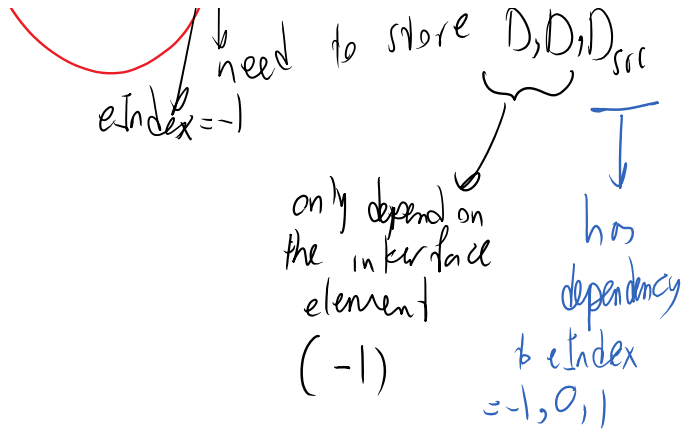 need to store D, D, D_src
eIndex = -1
only depend on
the interface
element
(-1)
has
dependency
to eIndex
= -1, 0, 1